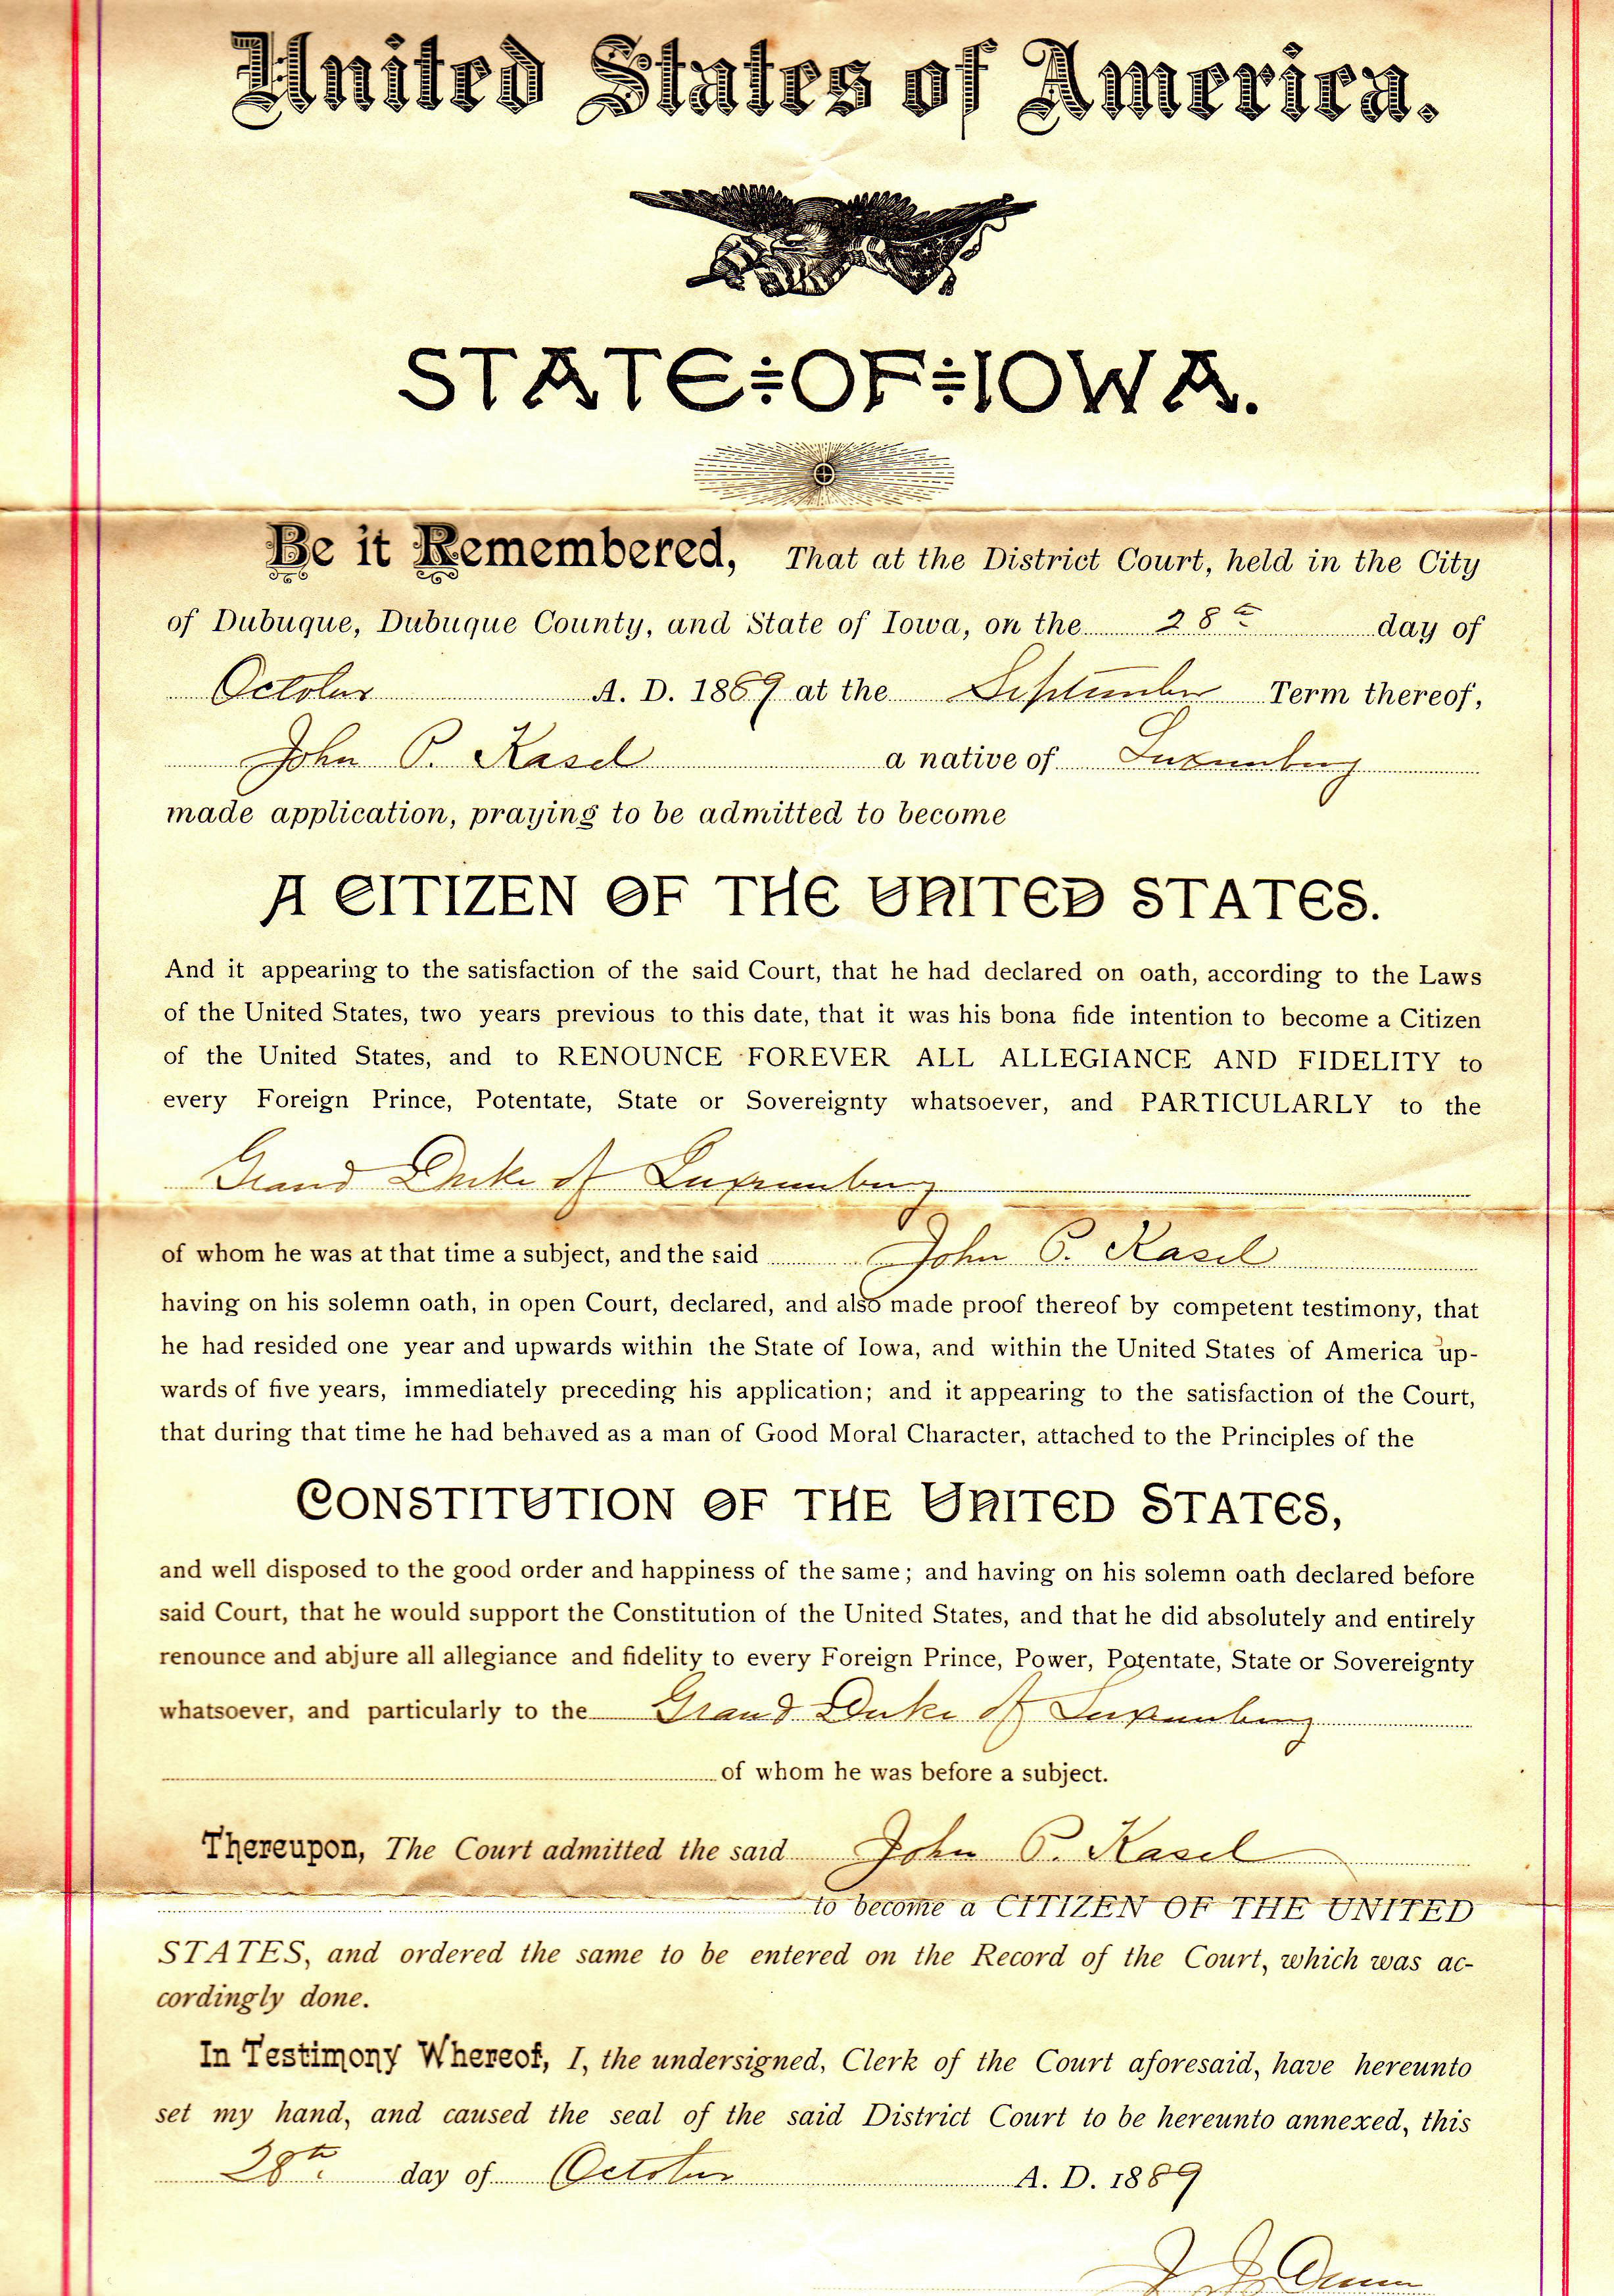 United States of America.
STATE÷OF÷IOWA.
Be it Remembered, That at the District Court, held in the City
of Dubuque, Dubuque County, and State of Iowa, on the 28th day of
October A. D. 1889 at the September Term thereof,
John P. Kasel a native of Luxemburg
made application, praying to be admitted to become
A CITIZEN OF THE UNITED STATES.
And it appearing to the satisfaction of the said Court, that he had declared on oath, according to the Laws
of the United States, two years previous to this date, that it was his bona fide intention to become a Citizen
of the United States, and to RENOUNCE FOREVER ALL ALLEGIANCE AND FIDELITY to
every Foreign Prince, Potentate, State or Sovereignty whatsoever, and PARTICULARLY to the
Grand Duke of Luxemburg
of whom he was at that time a subject, and the said John P. Kasel
having on his solemn oath, in open Court, declared, and also made proof thereof by competent testimony, that
he had resided one year and upwards within the State of Iowa, and within the United States of America up-
wards of five years, immediately preceding his application; and it appearing to the satisfaction of the Court,
that during that time he had behaved as a man of Good Moral Character, attached to the Principles of the
CONSTITUTION OF THE UNITED STATES,
and well disposed to the good order and happiness of the same; and having on his solemn oath declared before
said Court, that he would support the Constitution of the United States, and that he did absolutely and entirely
renounce and abjure all allegiance and fidelity to every Foreign Prince, Power, Potentate, State or Sovereignty
whatsoever, and particularly to the Grand Duke of Luxemburg
of whom he was before a subject.
Thereupon, The Court admitted the said John P. Kasel
to become a CITIZEN OF THE UNITED
STATES, and ordered the same to be entered on the Record of the Court, which was ac-
cordingly done.
In Testimony Whereof, I, the undersigned, Clerk of the Court aforesaid, have hereunto
set my hand, and caused the seal of the said District Court to be hereunto annexed, this
28th. day of October A. D. 1889